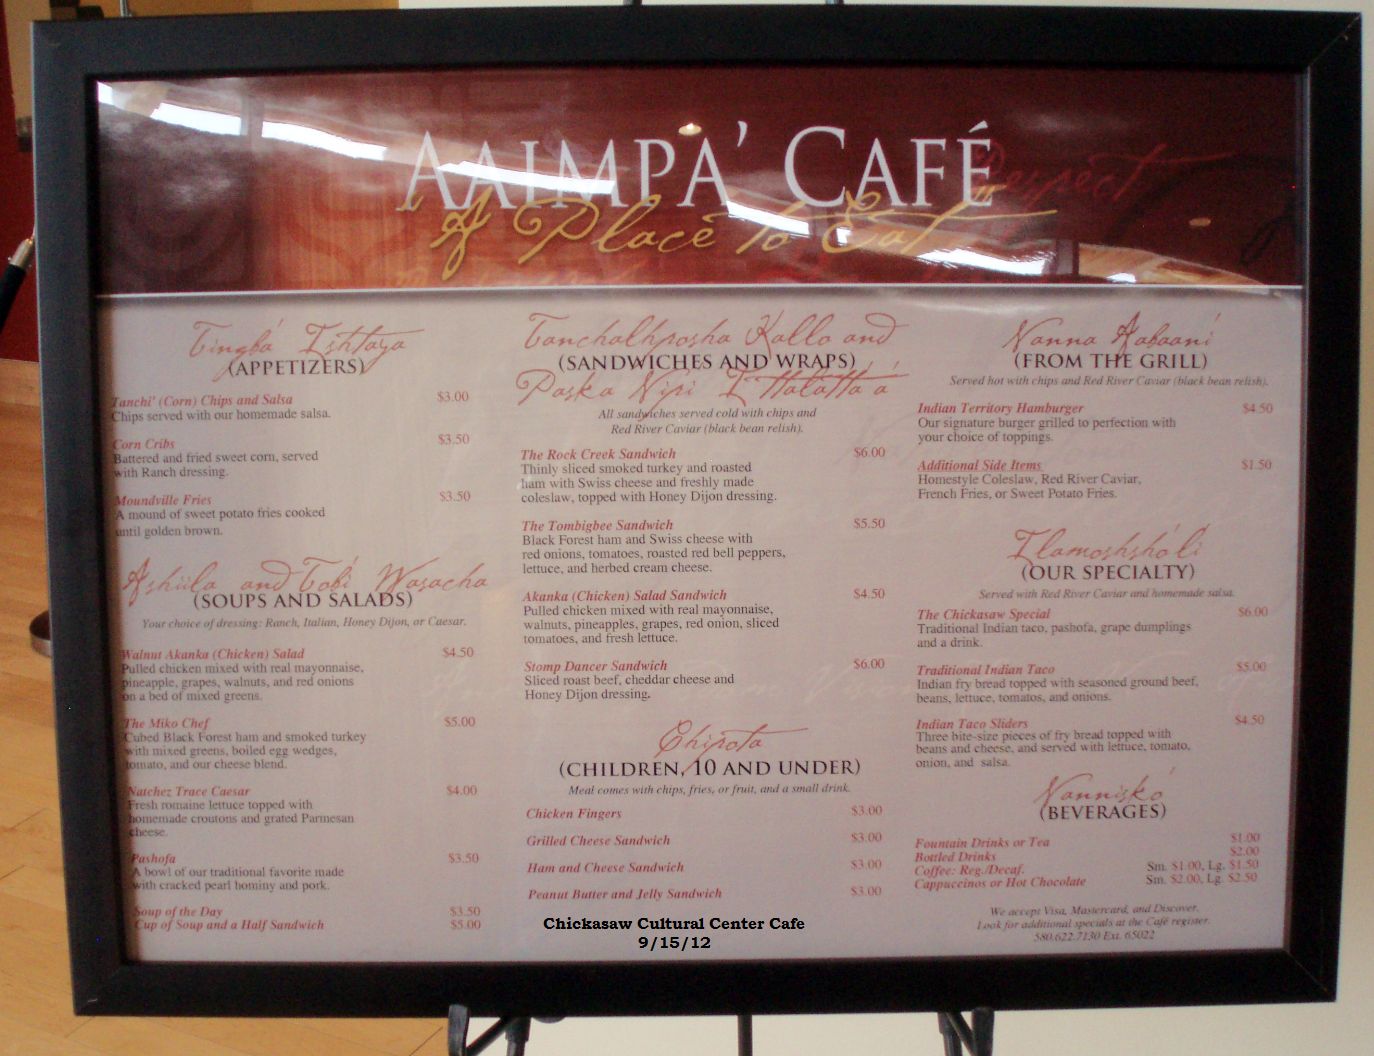 AAIMPA' CAFÉ
A Place to Eat
Respect
Tingba' Ishtaya
(APPETIZERS)
Tanchi' (Corn) Chips and Salsa $3.00
Chips served with our homemade salsa.
Corn Cribs $3.50
Battered and fried sweet corn, served
with Ranch dressing.
Moundville Fries $3.50
A mound of sweet potato fries cooked
until golden brown.
Ashiila and Tobi Wasacha
(SOUPS AND SALADS)
Your choice of dressing: Ranch, Italian, Honey Dijon, or Caesar.
Walnut Akanka (Chicken) Salad $4.50
Pulled chicken mixed with real mayonnaise,
pineapple, grapes, walnuts, and red onions
on a bed of mixed greens.
The Miko Chef $5.00
Cubed Black Forest ham and smoked turkey
with mixed greens, boiled egg wedges,
tomato, and our cheese blend.
Natchez Trace Caesar $4.00
Fresh romaine lettuce topped with
homemade croutons and grated Parmesan
cheese.
Pashofa $3.50
A bowl of our traditional favorite made
with cracked pearl hominy and pork.
Soup of the Day $3.50
Cup of Soup and a Half Sandwich $5.00
Tanchalhposha Kallo and
(SANDWICHES AND WRAPS)
Paska Nipi Ittalatta'a'
All sandwiches served cold with chips and
Red River Caviar (black bean relish).
The Rock Creek Sandwich $6.00
Thinly sliced smoked turkey and roasted
ham with Swiss cheese and freshly made
coleslaw, topped with Honey Dijon dressing.
The Tombigbee Sandwich $5.50
Black Forest ham and Swiss cheese with
red onions, tomatoes, roasted red bell peppers,
lettuce, and herbed cream cheese.
Akanka (Chicken) Salad Sandwich $4.50
Pulled chicken mixed with real mayonnaise,
walnuts, pineapples, grapes, red onion, sliced
tomatoes, and fresh lettuce.
Stomp Dancer Sandwich $6.00
Sliced roast beef, cheddar cheese and
Honey Dijon dressing.
Chipota
(CHILDREN, 10 AND UNDER)
Meal comes with chips, fries, or fruit, and a small drink.
Chicken Fingers $3.00
Grilled Cheese Sandwich $3.00
Ham and Cheese Sandwich $3.00
Peanut Butter and Jelly Sandwich $3.00
Nanna Aabaani
(FROM THE GRILL)
Served hot with chips and Red River Caviar (black bean relish).
Indian Territory Hamburger $4.50
Our signature burger grilled to perfection with
your choice of toppings.
Additional Side Items $1.50
Homestyle Coleslaw, Red River Caviar,
French Fries, or Sweet Potato Fries.
Ilamoshsho'li
(OUR SPECIALTY)
Served with Red River Caviar and homemade salsa.
The Chickasaw Special $6.00
Traditional Indian taco, pashofa, grape dumplings
and a drink.
Traditional Indian Taco $5.00
Indian fry bread topped with seasoned ground beef,
beans, lettuce, tomatos, and onions.
Indian Taco Sliders $4.50
Three bite-size pieces of fry bread topped with
beans and cheese, and served with lettuce, tomato,
onion, and salsa.
Nannisko'
(BEVERAGES)
Fountain Drinks or Tea $1.00
Bottled Drinks $2.00
Coffee: Reg./Decaf. Sm. $1.00, Lg. $1.50
Cappuccinos or Hot Chocolate Sm. $2.00, Lg. $2.50
We accept Visa, Mastercard, and Discover.
Look for additional specials at the Café register.
580.622.7130 Ext. 65022
Chickasaw Cultural Center Cafe
9/15/12